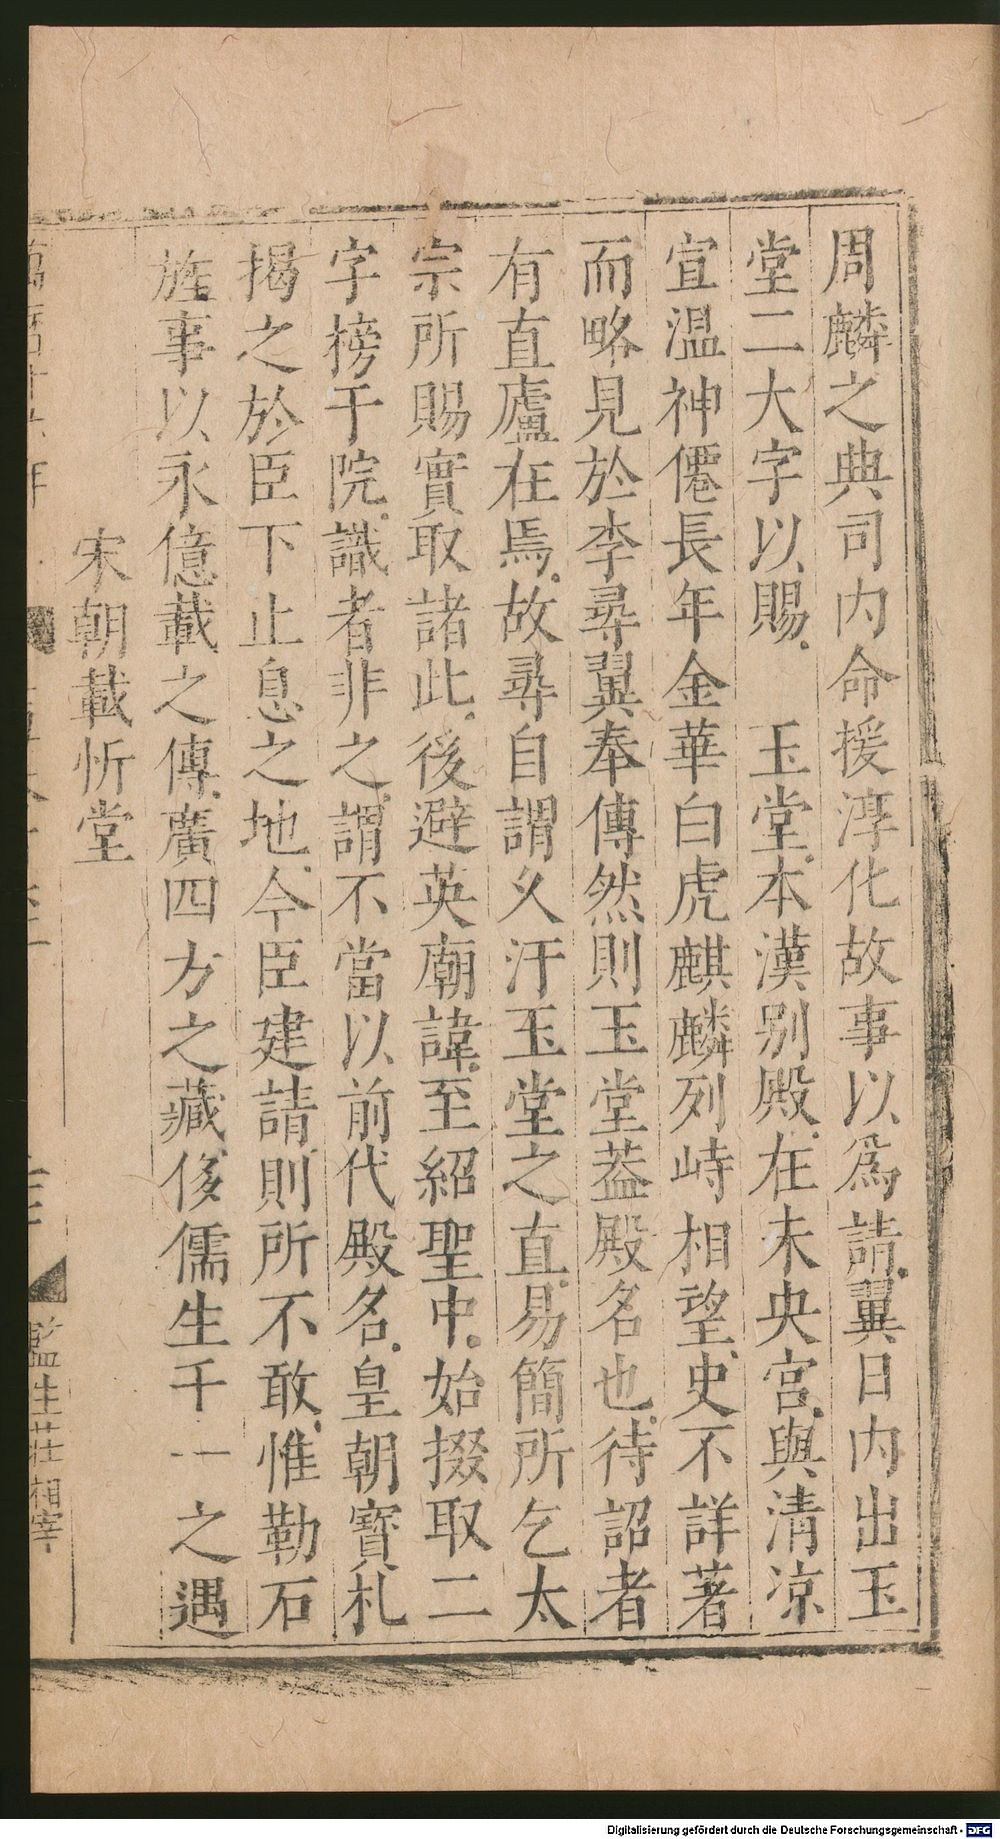 周麟之典司内命援淳化故事以爲請翼日内出玉
堂二大字以賜　玉堂本漢别殿在未央宫與清凉
宣温神僊長年金華白虎麒麟列峙相望史不詳著
而略見於李尋翼奉傳然則玉堂葢殿名也待詔者
有直廬在焉故尋自謂久汙玉堂之直易簡所乞太
宗所賜實取諸此後避英廟諱至紹聖中始掇取二
字榜于院識者非之謂不當以前代殿名皇朝寶札
揭之於臣下止息之地今臣建請則所不敢惟勒石
旌事以永億載之傳廣四方之藏俊儒生千一之遇
宋朝載忻堂
監生莊相宰
Digitalisierung gefördert durch die Deutsche Forschungsgemeinschaft - DFG